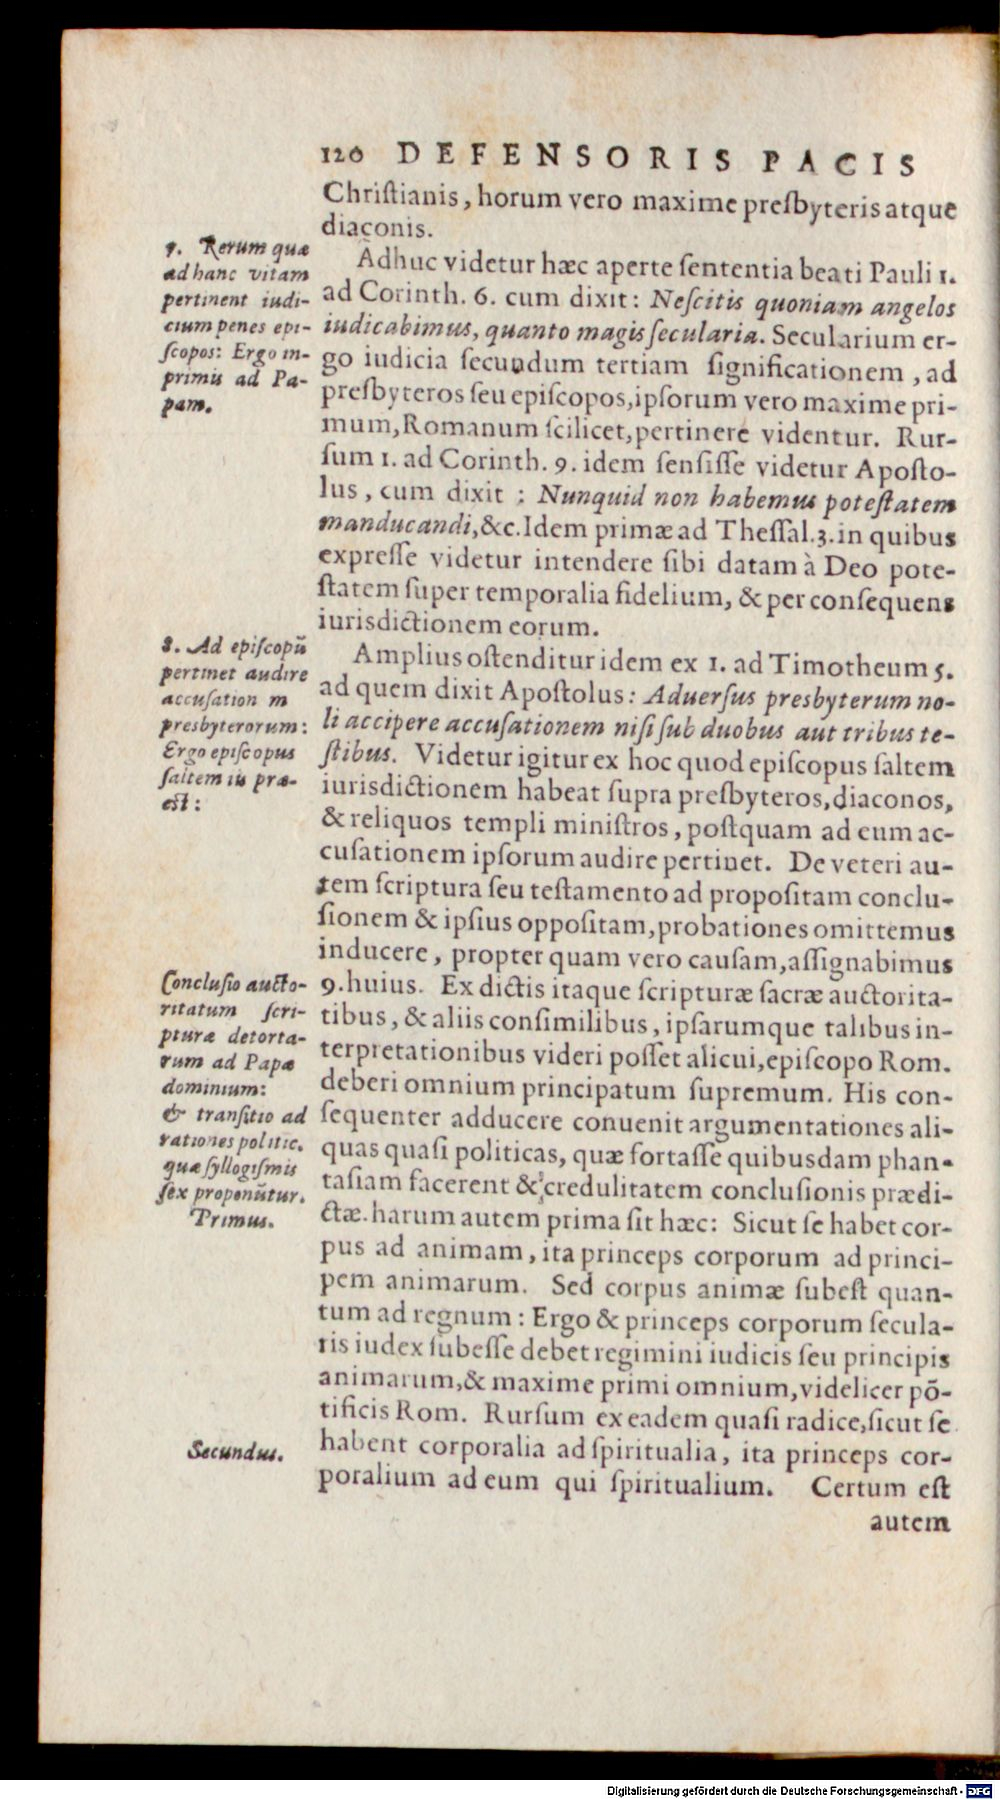 120 DEFENSORIS PACIS
Chriſtianis, horum vero maxime preſbyteris atque
diaconis.
7. Rerum quæ
ad hanc vitam
pertinent iudi-
cium penes epi-
ſcopos: Ergo in-
primis ad Pa-
pam.
Adhuc videtur hæc aperte ſententia beati Pauli 1.
ad Corinth. 6. cum dixit: Neſcitis quoniam angelos
iudicabimus, quanto magis ſecularia. Secularium er-
go iudicia ſecundum tertiam ſignificationem, ad
preſbyteros ſeu epiſcopos, ipſorum vero maxime pri-
mum, Romanum ſcilicet, pertinere videntur. Rur-
ſum 1. ad Corinth. 9. idem ſenſiſſe videtur Apoſto-
lus, cum dixit: Nunquid non habemus poteſtatem
manducandi, &c. Idem primæ ad Theſſal. 3. in quibus
expreſſe videtur intendere ſibi datam à Deo pote-
ſtatem ſuper temporalia fidelium, & per conſequens
iurisdictionem eorum.
8. Ad epiſcopũ
pertinet audire
accuſation m
presbyterorum:
Ergo epiſcopus
ſaltem iis præ-
est:
Amplius oſtenditur idem ex 1. ad Timotheum 5.
ad quem dixit Apoſtolus: Aduerſus presbyterum no-
li accipere accuſationem niſi ſub duobus aut tribus te-
ſtibus. Videtur igitur ex hoc quod epiſcopus ſaltem
iurisdictionem habeat ſupra preſbyteros, diaconos,
& reliquos templi miniſtros, poſtquam ad eum ac-
cuſationem ipſorum audire pertinet. De veteri au-
tem ſcriptura ſeu teſtamento ad propoſitam conclu-
ſionem & ipſius oppoſitam, probationes omittemus
inducere, propter quam vero cauſam, aſſignabimus
Concluſio aucto-
ritatum ſcri-
pturæ detorta-
rum ad Papæ
dominium:
& tranſitio ad
rationes politic.
quæ ſyllogiſmis
ſex proponũtur.
Primus.
9. huius. Ex dictis itaque ſcripturæ ſacræ auctorita-
tibus, & aliis conſimilibus, ipſarumque talibus in-
terpretationibus videri poſſet alicui, epiſcopo Rom.
deberi omnium principatum ſupremum. His con-
ſequenter adducere conuenit argumentationes ali-
quas quaſi politicas, quæ fortaſſe quibusdam phan-
taſiam facerent & credulitatem concluſionis prædi-
ctæ. harum autem prima ſit hæc: Sicut ſe habet cor-
pus ad animam, ita princeps corporum ad princi-
pem animarum. Sed corpus animæ ſubeſt quan-
tum ad regnum: Ergo & princeps corporum ſecula-
ris iudex ſubeſſe debet regimini iudicis ſeu principis
animarum, & maxime primi omnium, videlicer põ-
tificis Rom. Rurſum ex eadem quaſi radice, ſicut ſe
Secundus.
habent corporalia ad ſpiritualia, ita princeps cor-
poralium ad eum qui ſpiritualium. Certum eſt
autem
Digitalisierung gefördert durch die Deutsche Forschungsgemeinschaft - DFG